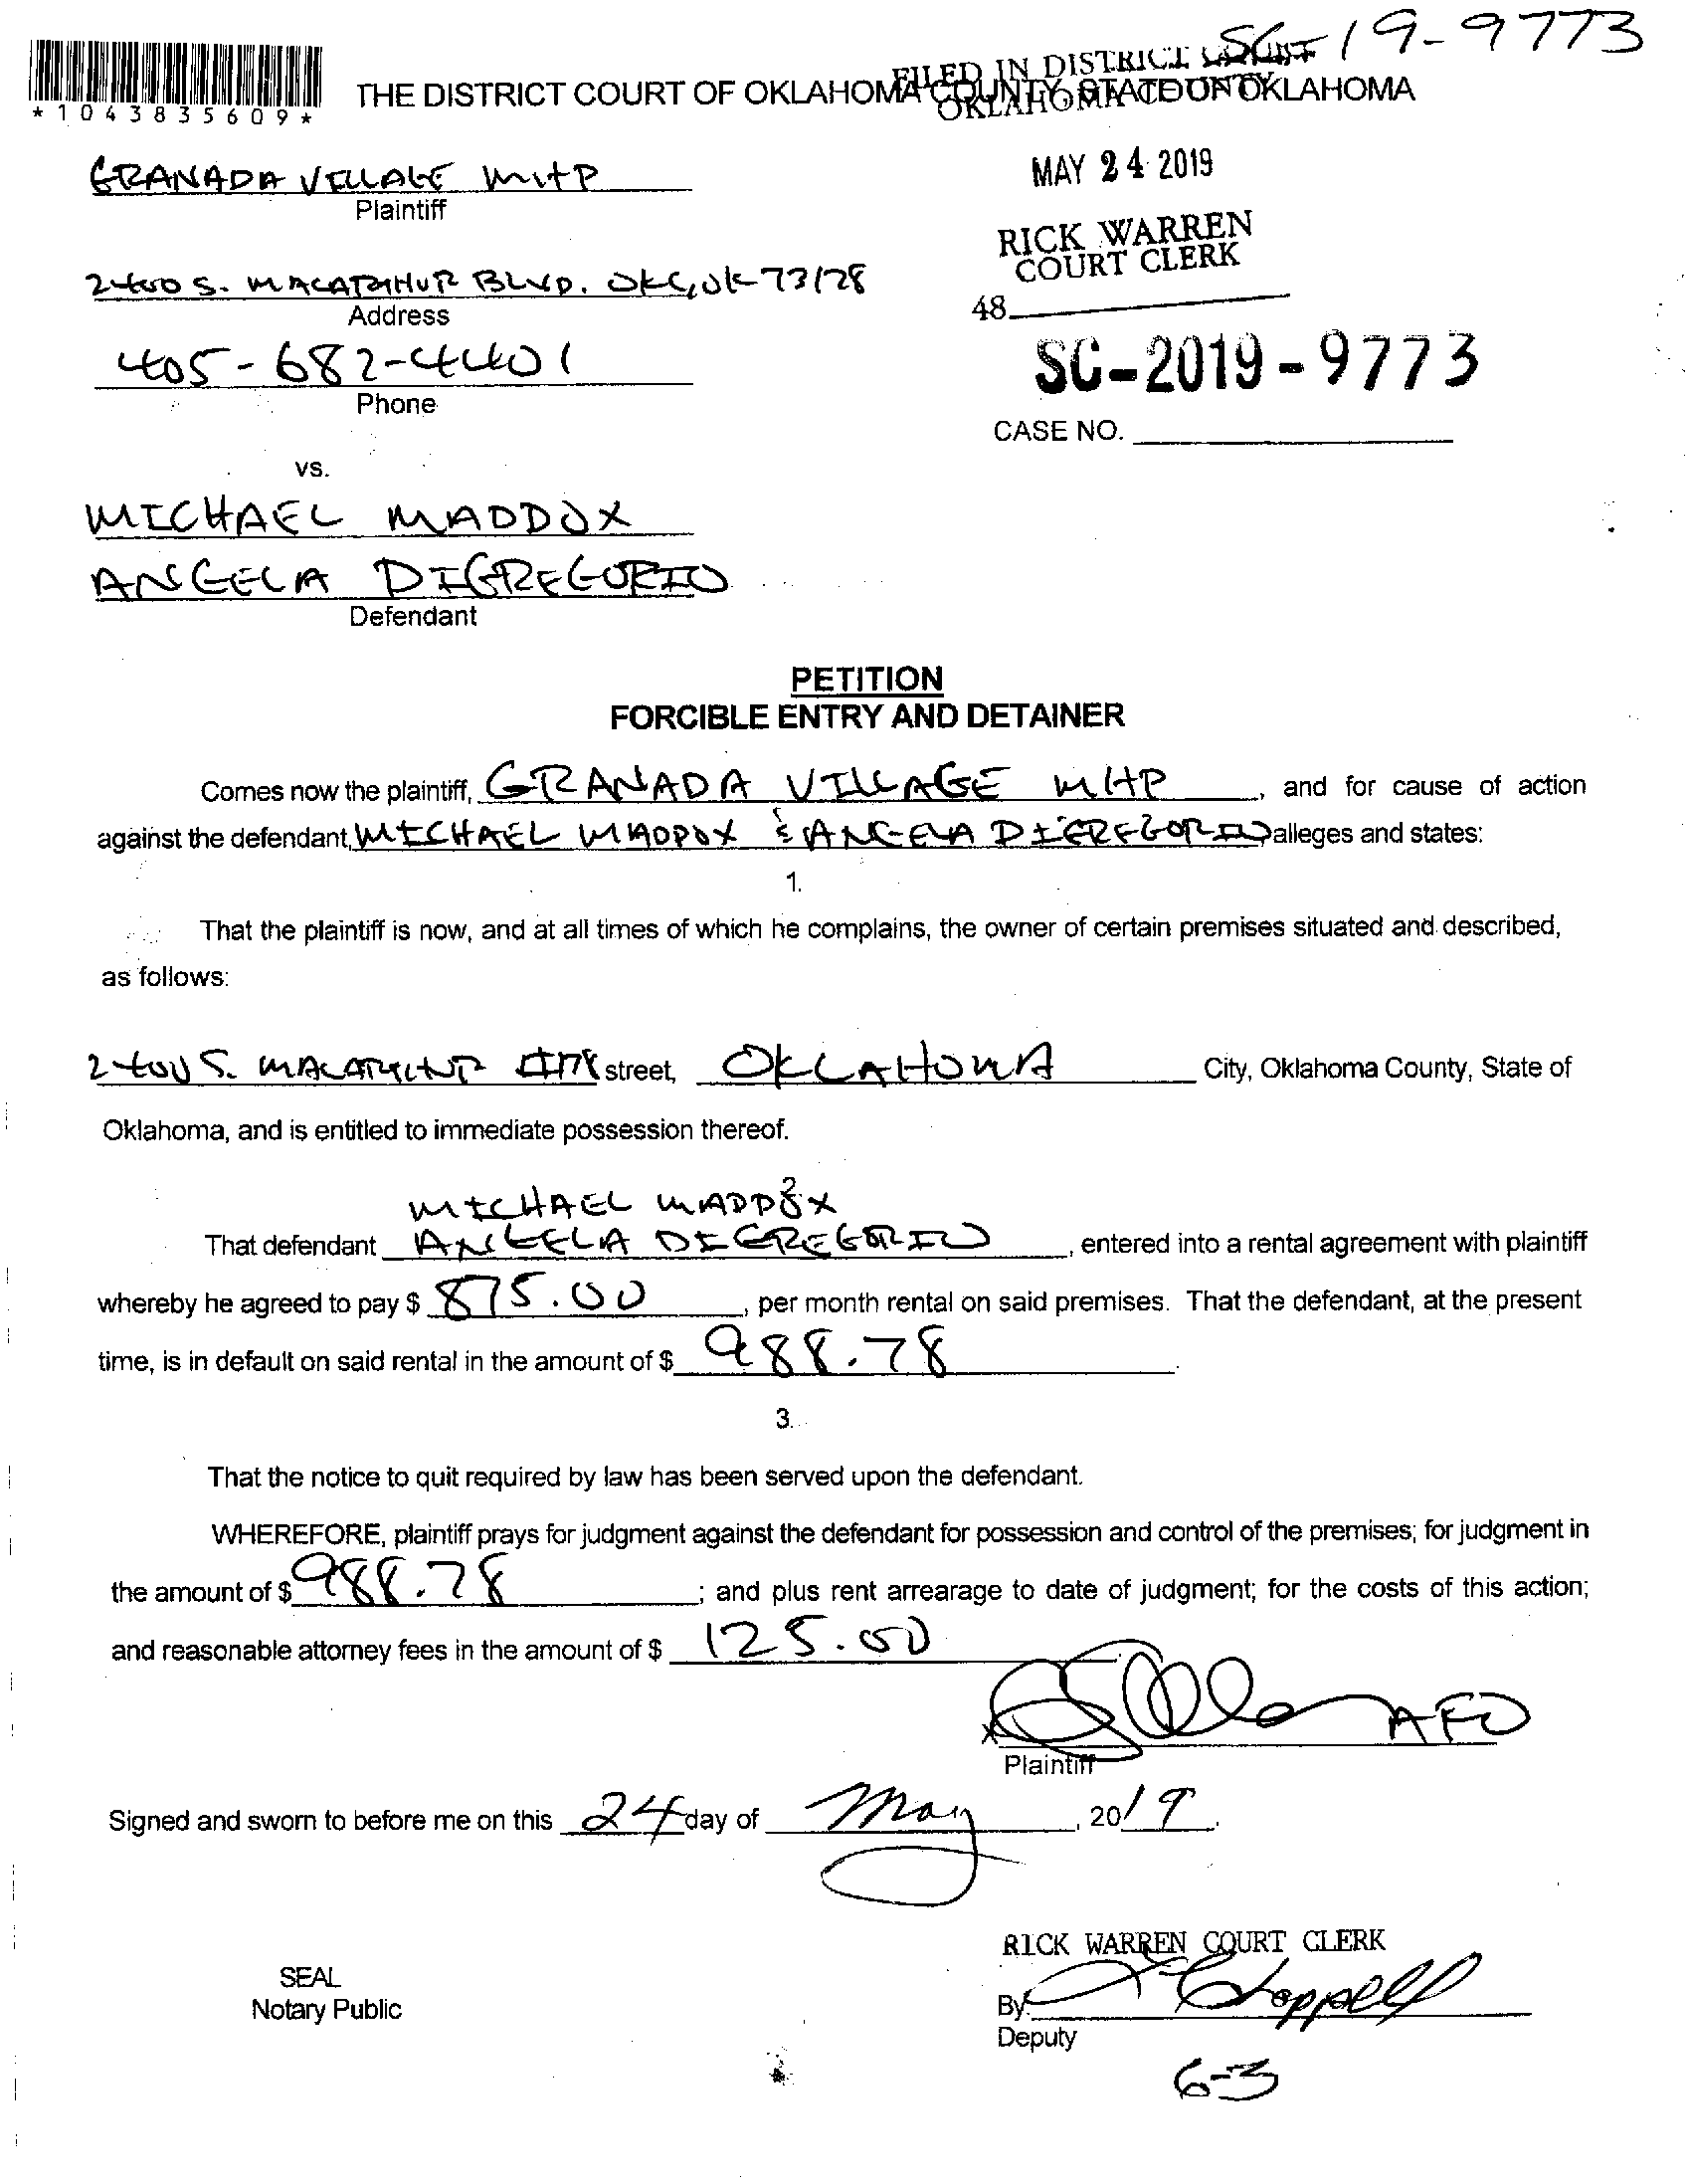 SC-19-9773
FILED IN DISTRICT COURT
OKLAHOMA COUNTY
THE DISTRICT COURT OF OKLAHOMA COUNTY, STATE OF OKLAHOMA
*1043835609*
GRANADA VILLAGE MHP
MAY 24 2019
Plaintiff
RICK WARREN
COURT CLERK
2400 S. MACARTHUR BLVD. OKC, OK 73128
Address
48
405-682-4401
SC-2019-9773
Phone
CASE NO.
vs.
MICHAEL MADDOX
ANGELA DIGREGORIO
Defendant
PETITION
FORCIBLE ENTRY AND DETAINER
Comes now the plaintiff, GRANADA VILLAGE MHP, and for cause of action
against the defendant, MICHAEL MADDOX & ANGELA DIGREGORIO alleges and states:
1.
That the plaintiff is now, and at all times of which he complains, the owner of certain premises situated and described,
as follows:
2400 S. MACARTHUR #178 street, OKLAHOMA City, Oklahoma County, State of
Oklahoma, and is entitled to immediate possession thereof.
2
MICHAEL MADDOX
That defendant ANGELA DIGREGORIO, entered into a rental agreement with plaintiff
whereby he agreed to pay $ 875.00, per month rental on said premises. That the defendant, at the present
time, is in default on said rental in the amount of $ 988.78.
3.
That the notice to quit required by law has been served upon the defendant.
WHEREFORE, plaintiff prays for judgment against the defendant for possession and control of the premises; for judgment in
the amount of $ 988.78; and plus rent arrearage to date of judgment; for the costs of this action;
and reasonable attorney fees in the amount of $ 125.00
x AFO
Plaintiff
Signed and sworn to before me on this 24 day of May, 2019.
RICK WARREN COURT CLERK
SEAL
Notary Public
By: Chappell
Deputy
6-3